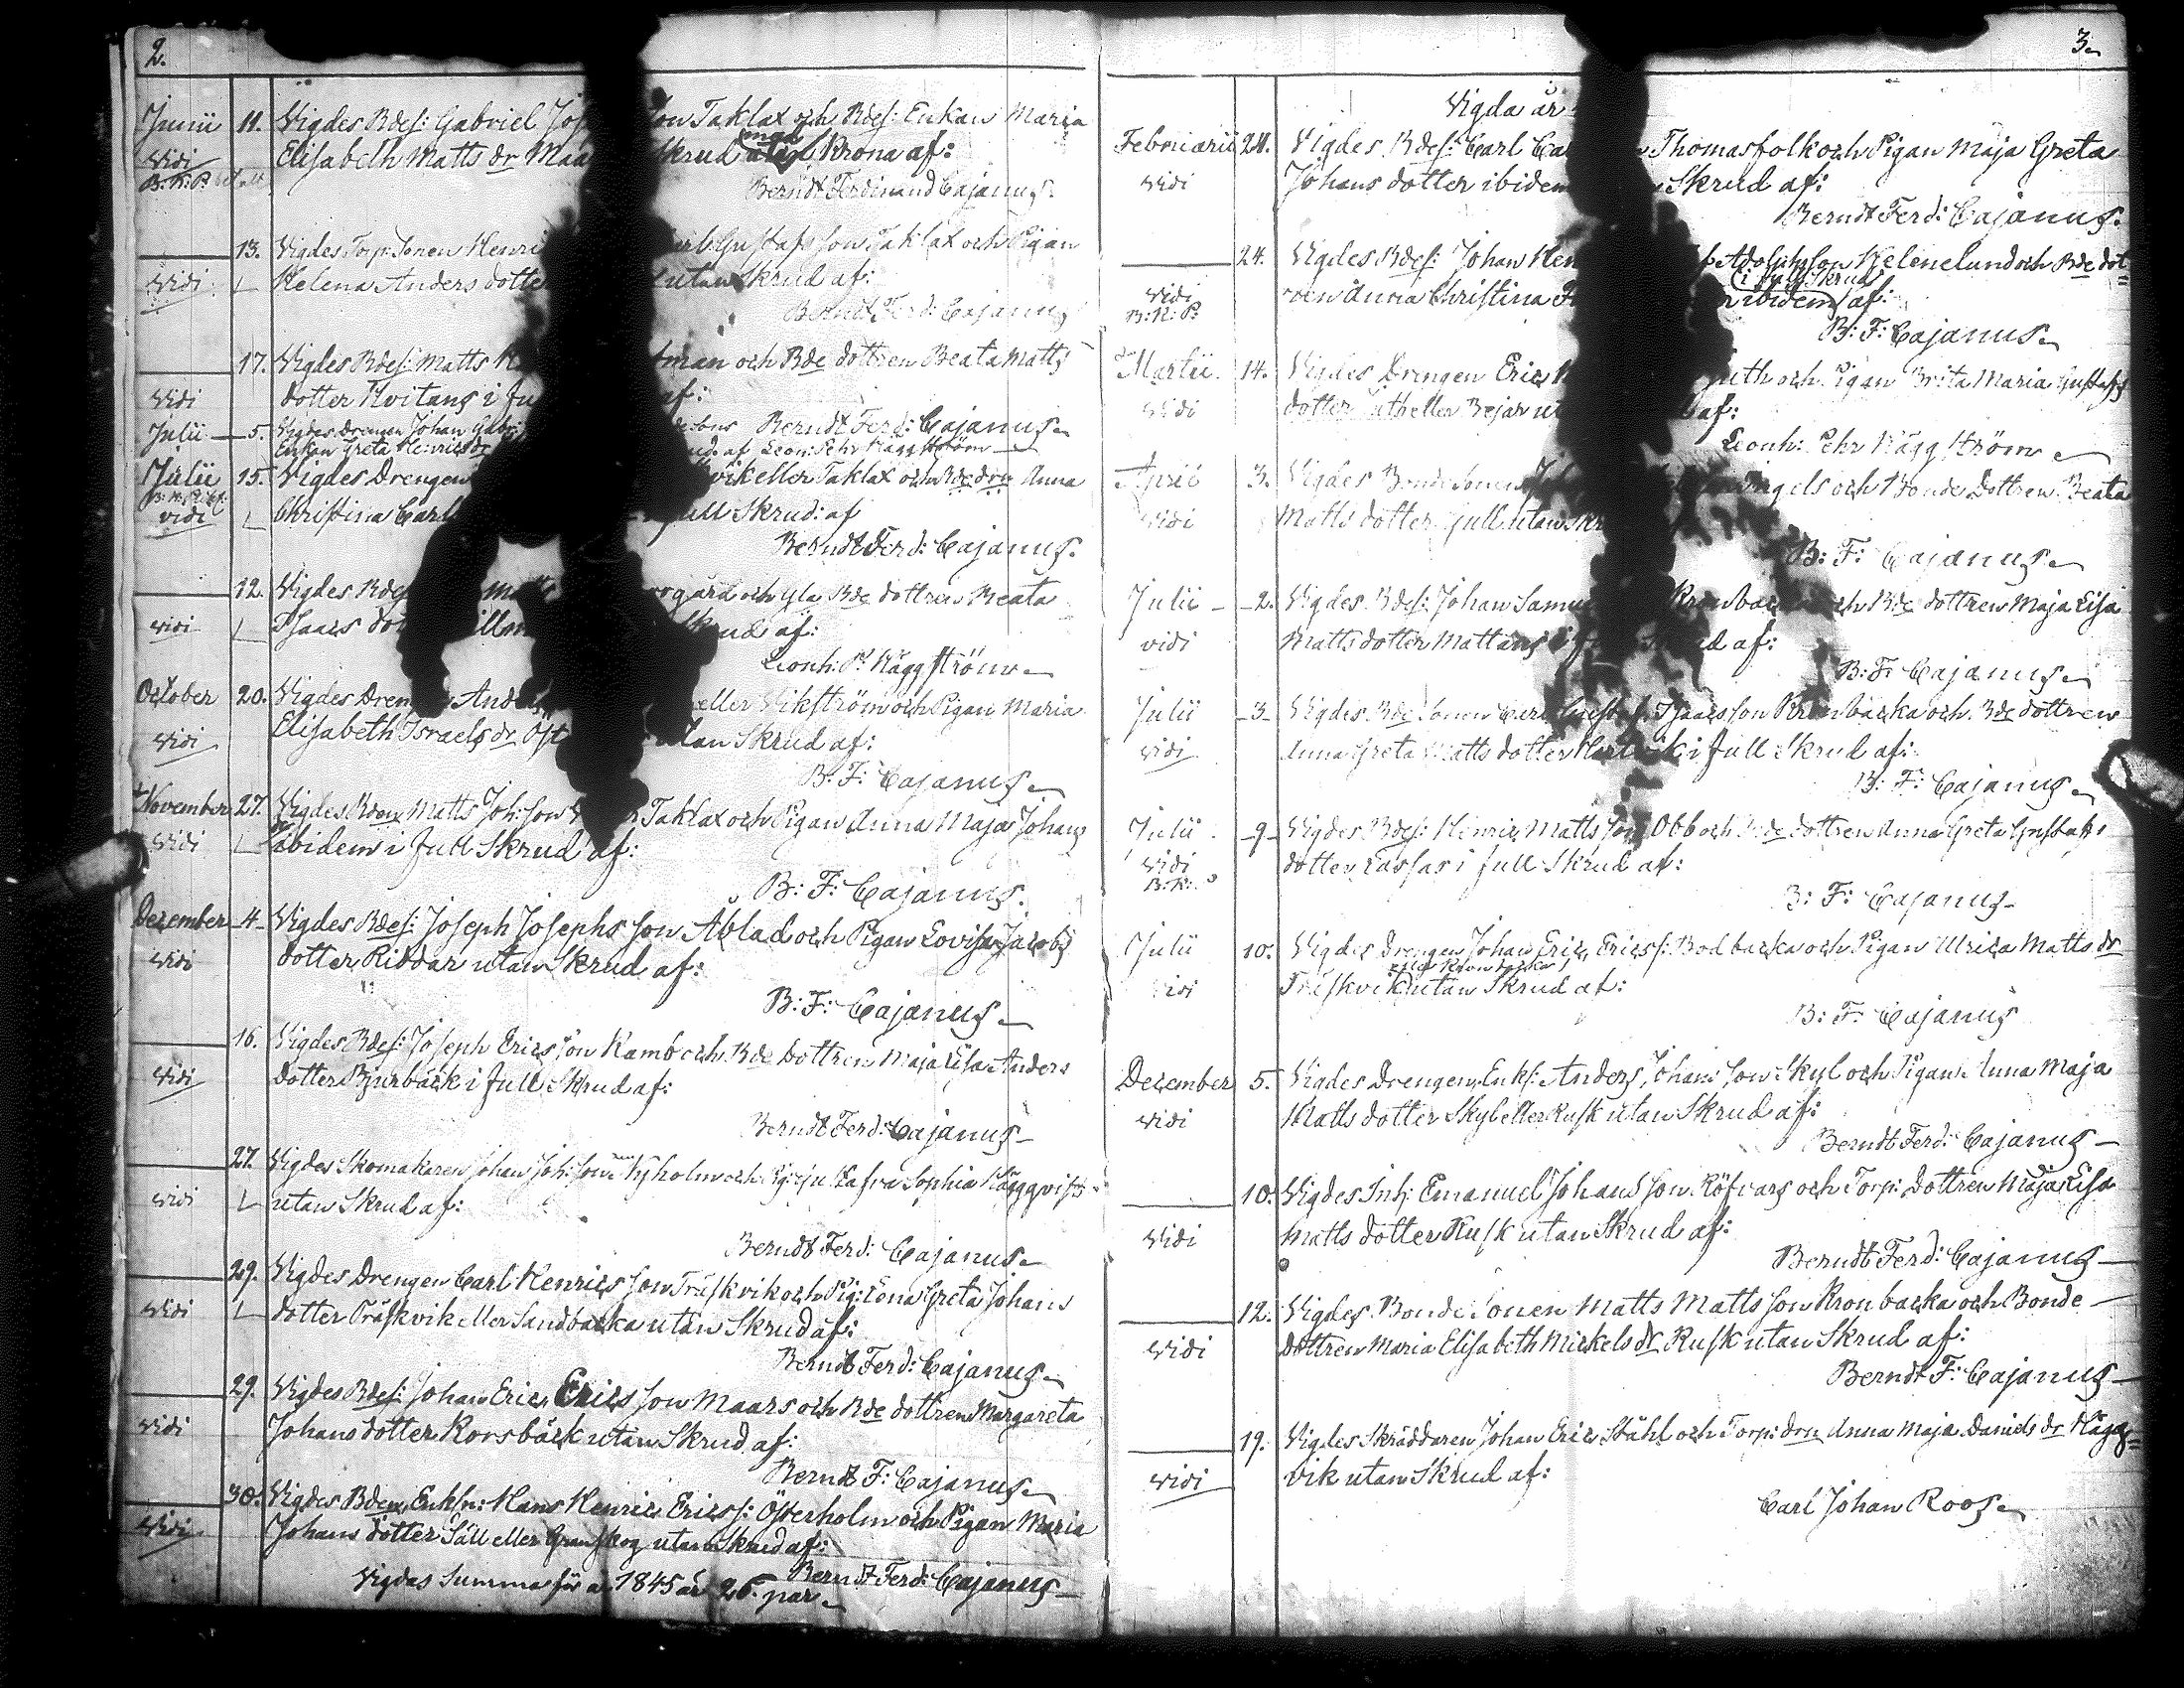 2.
Junii 11. Vigdes Bdes: Gabriel Jos son Taklax och Bdes: Enkan Maria
Vidi Elisabeth Matts dr Maa Skrud med Krona af:
B: K: P:
Berndt Ferdinand Cajanus.
13. Vigdes Torp: Sonen Henri Gustafs son Taklax och Pigan
Vidi Helena Anders dotter utan Skrud af:
Berndt Ferd: Cajanus
17. Vigdes Bdes: Matts man och Bde dottren Beata Matts
Vidi dotter Kvitans i fu af:
Berndt Ferd: Cajanus
Julii 5. Vigdes Drengen Johan Gabri
Enkan Greta Henrics dr af Leon: Pehr Häggström
Julii 15. Vigdes Drengen vik eller Taklax och Bde drn Anna
Vidi Christina Carl full Skrud: af
Berndt Ferd: Cajanus.
12. Vigdes Bdes Matts gård och Gla Bde dottren Beata
Vidi Isaacs dot Skrud af:
Leonh: P: Häggström
October 20. Vigdes Drengen And eller Wikström och Pigan Maria
Vidi Elisabeth Israels dr Öst utan Skrud af:
B: F: Cajanus
November 27. Vigdes Bdon Matts Joh: son Taklax och Pigan Anna Maja Johans
Vidi ibidem i full Skrud af:
B: F: Cajanus.
December 4. Vigdes Bdes: Joseph Josephs son Åblad och Pigan Lovisa Jacobs
Vidi dotter Riddar utan Skrud af:
B: F: Cajanus
16. Vigdes Bdes: Joseph Erics son Kamb och Bde Dottren Maja Lisa Anders
Vidi dotter Bjurbäck i full Skrud af:
Berndt Ferd: Cajanus
27. Vigdes Skomakaren Johan Joh: son Nyholm och Sophia Häggqvist
Vidi utan Skrud af:
Berndt Ferd: Cajanus
29. Vigdes Drengen Carl Henrics son Träskvik och Pig: Lena Greta Johans
Vidi dotter Träskvik eller Sandbacka utan Skrud af:
Berndt Ferd: Cajanus
29. Vigdes Bdes: Johan Eric Erics son Maars och Bde dottren Margareta
Vidi Johans dotter Korsbäck utan Skrud af:
Berndt F: Cajanus
30. Vigdes Bden, Enkln: Hans Henric Erics s: Österholm och Pigan Maria
Vidi Johans dotter Säll eller Granskog utan Skrud af:
Berndt Ferd: Cajanus
Vigdas Summa för år 1845 är 26. par
3.
Vigda år
Februarii 24. Vigdes Bdes: Carl Ca Thomasfolk och Pigan Maja Greta
Vidi Johans dotter ibidem Skrud af:
Berndt Ferd: Cajanus.
24. Vigdes Bdes: Johan Hen Adolphsson Helenelund och Bde dot=
i full Skrud
Vidi tren Anna Christina ibidem af:
B: K: P:
B: F: Cajanus
Martii 14. Vigdes Drengen Eric och Pigan Brita Maria Gustafs
Vidi dotter eller Bejar ut af:
Leonh: Pehr Häggström
April 3. Vigdes Bonde Sonen Jo Ingels och Bonde Dottren Beata
Vidi Matts dotter Gull utan Skr
B: F: Cajanus
Julii 2. Vigdes Bdes: Johan Samu Kronbac och Bde dottren Maja Lisa
Vidi Matts dotter Mattans i full Skrud af:
B: F: Cajanus
Julii 3. Vigdes Bde Sonen Carl Gustaf Isaacs son Kronbacka och Bde dottren
Vidi Anna Greta Matts dotter i full Skrud af:
B: F: Cajanus
Julii 9. Vigdes Bdes: Henric Matts son Obb och Bde dottren Anna Greta Gustafs
Vidi dotter Lassas i full Skrud af:
B: K: P
B: F: Cajanus
Julii 10. Vigdes Drengen Johan Eric Erics s: Bodbacka och Pigan Ulrica Matts dr
eller Kronbacka
Vidi Träskvik utan Skrud af:
B: F: Cajanus
December 5. Vigdes Drengen, Enkl: Anders Johans son Skyl och Pigan Anna Maja
Vidi Matts dotter Skyl eller Rusk utan Skrud af:
Berndt Ferd: Cajanus
10. Vigdes Inh: Emanuel Johans son Röfvars och Torp: Dottren Maja Lisa
Vidi Matts dotter Rusk utan Skrud af:
Berndt Ferd: Cajanus
12. Vigdes Bonde Sonen Matts Matts son Kronbacka och Bonde
Vidi Dottren Maria Elisabeth Mickels dr Rusk utan Skrud af:
Berndt F: Cajanus
19. Vigdes Skräddaren Johan Eric Ståhl och Torp: drn Anna Maja Daniels dr Hägg=
Vidi vik utan Skrud af:
Carl Johan Roos